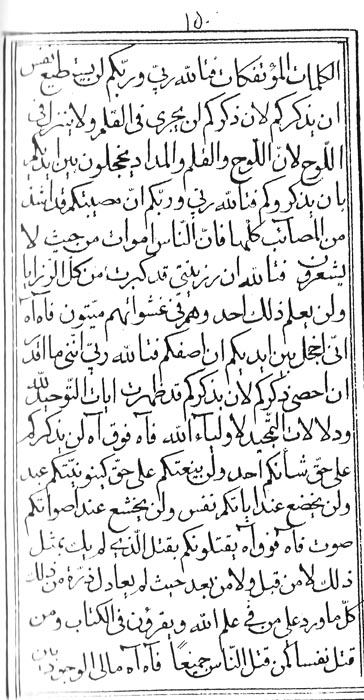 ١٥٠
الكلمات المؤتفكات فتالله ربي وربكم لن يستطيع نفس
ان يذكركم لان ذكركم لن يجرى فى القلم ولا ينزل فى
اللوح لان اللوح والقلم والمداد يخجلون بين ايديكم
بان يذكروكم فتالله ربي وربكم ان مصيبتكم قد اشد
من المصائب كلها فان الناس اموات من حيث لا
يشعرون فتالله ان رزيتي قد كبرت من كل الرزايا
ولن يعلم ذلك احد وهم في غشواتهم ميتون فآه آه
انى اخجل بين ايديكم ان اصفكم فتالله ربي اننى ما اقدر
ان احصى ذكركم لان بذكركم قد ظهرت ايات التوحيد لله
ودلالات التمجيد لاولياء الله فآه فوق آه لن يذكركم
على حق شأنكم احد ولن ينعتكم على حق كينونيتكم عبد
ولن يخضع عند اياتكم نفس ولن يخشع عند اصواتكم
صوت فآه فوق آه يقتلونكم بقتل الذى لم يك بمثل
ذلك لا من قبل ولا من بعد حيث لم يعادل ذرة من ذلك
كل ما ورد على من في علم الله ويقرؤن فى الكتاب ومن
قتل نفسا كمن قتل الناس جميعا فآه آه مالى الوجود بان